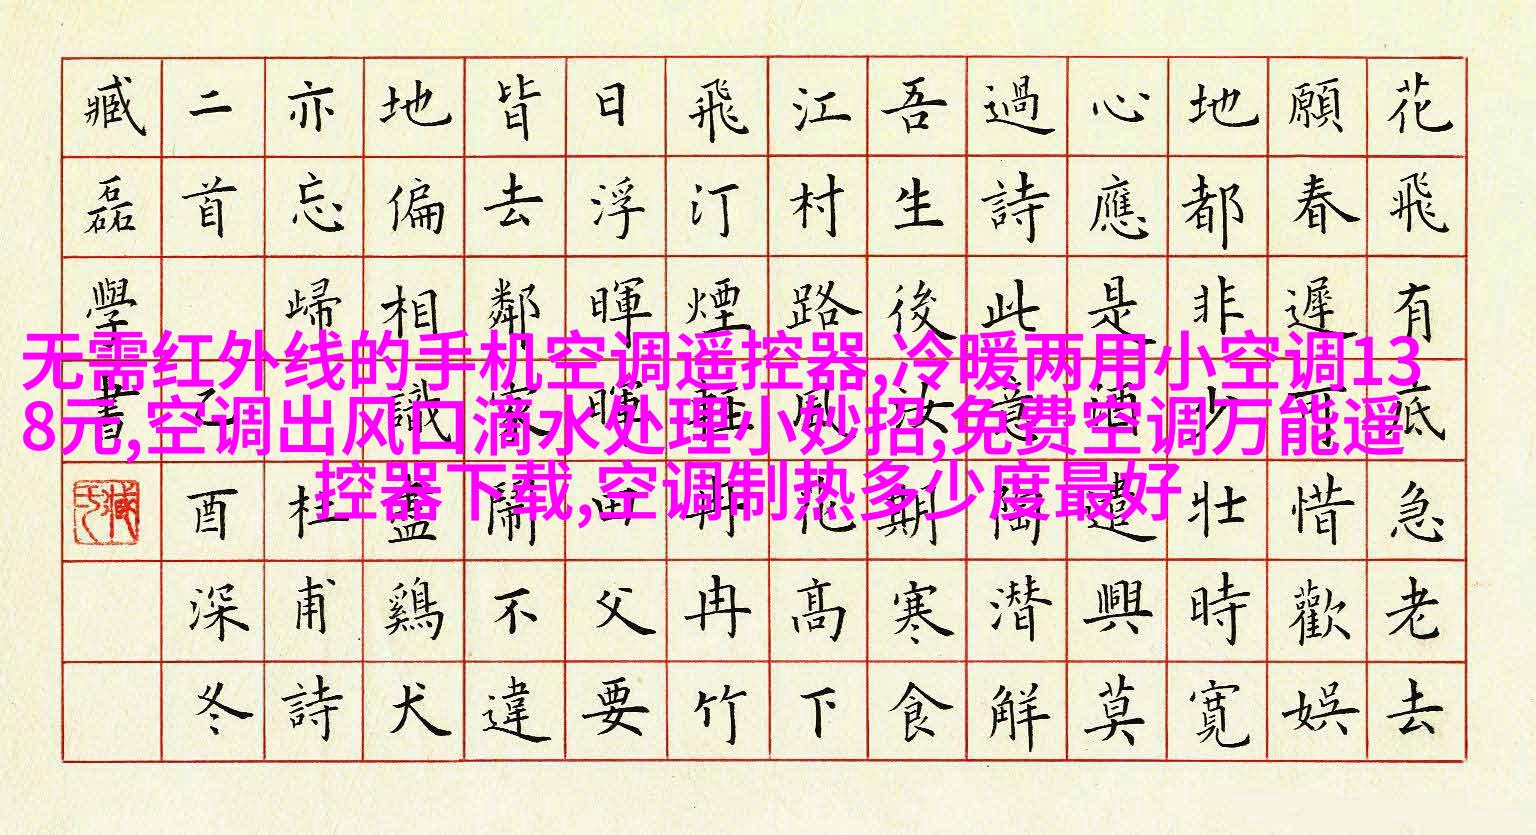 花飛有底急老去
願春遲可惜歡娛
地都非少壯時寬
心應是酒遣興莫
過詩此意陶潛解
吾生後汝期寒食
江村路風花高下
飛汀煙輕冉冉竹
日浮暉暉田父要
皆去鄰家鬧不違
地偏相識盡鷄犬
亦忘歸 杜甫詩
二首 乙酉深冬
臧磊學書
臧氏
无需红外线的手机空调遥控器,冷暖两用小空调13
8元,空调出风口滴水处理小妙招,免费空调万能遥
控器下载,空调制热多少度最好